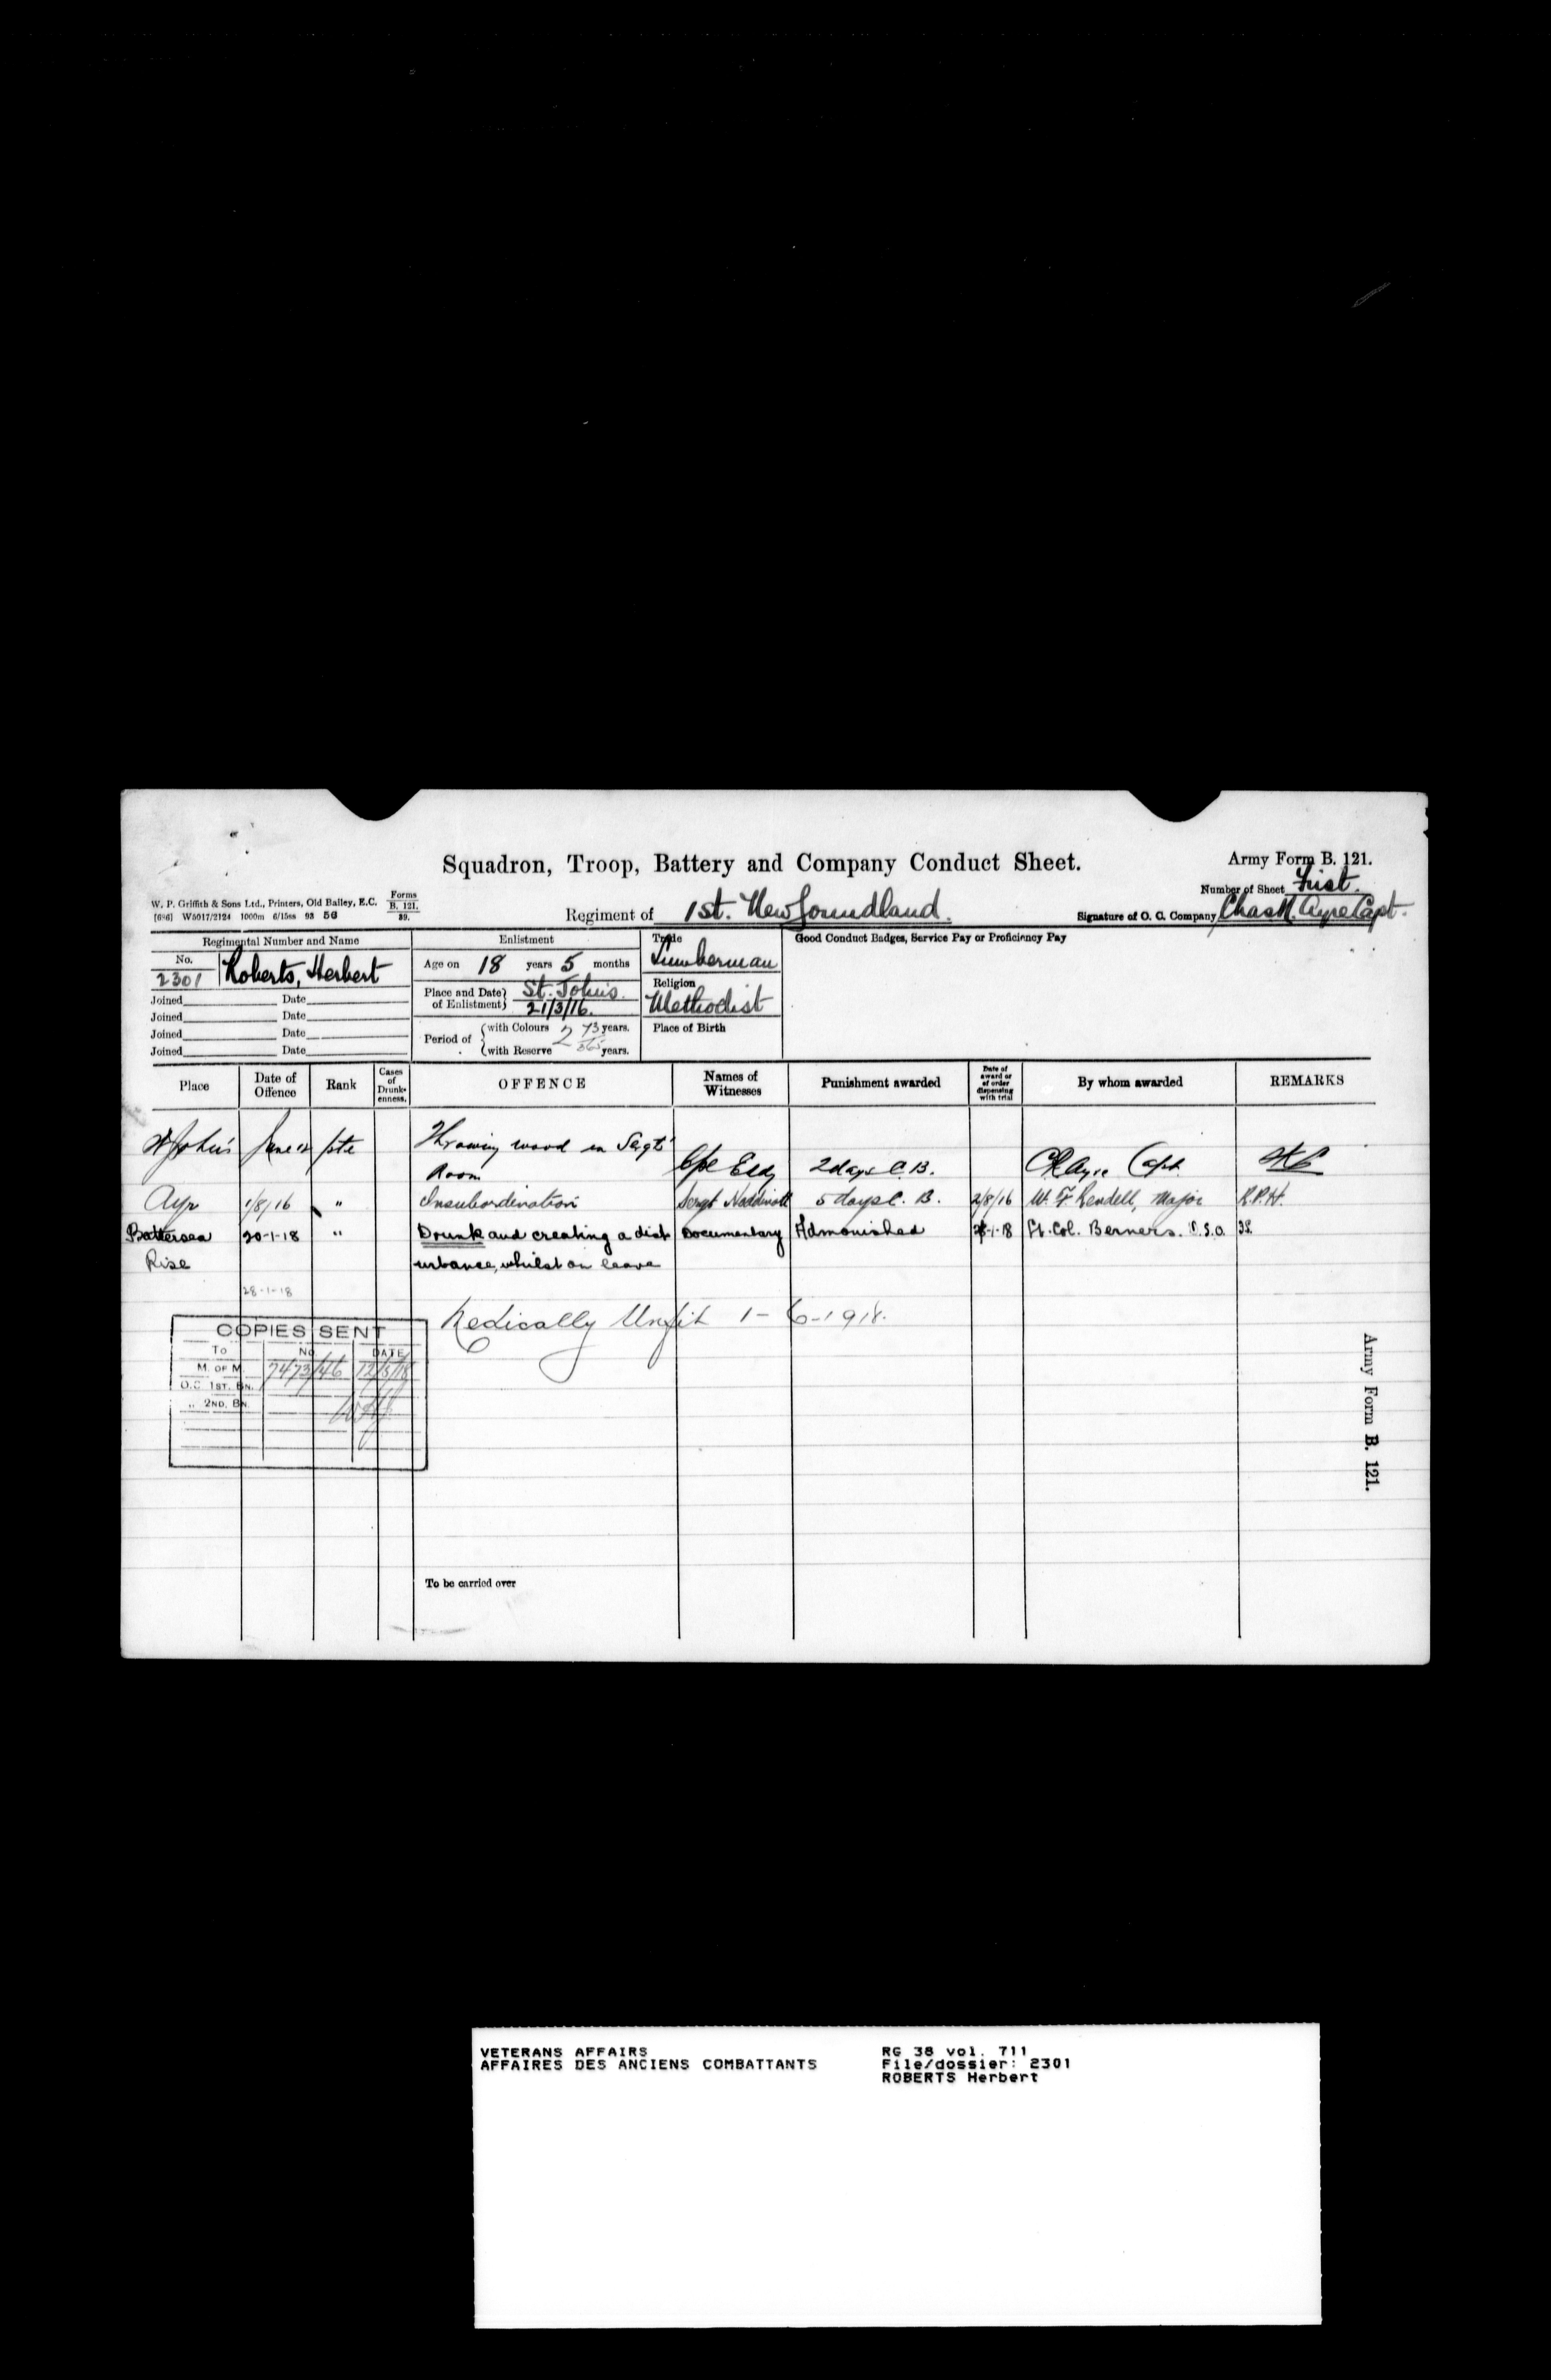 Squadron, Troop, Battery and Company Conduct Sheet.
Army Form B. 121.
Number of Sheet First.
W. P. Griffith & Sons Ltd., Printers, Old Bailey, E.C.
Forms B. 121. 39.
Regiment of 1st. Newfoundland.
Signature of O. C. Company Chas R. Ayre Capt.
Regimental Number and Name
No. 2301 Roberts, Herbert
Joined Date
Joined Date
Joined Date
Joined Date
Enlistment
Age on 18 years 5 months
Place and Date of Enlistment St. John's 21/3/16.
Period of
with Colours 2 73 years.
with Reserve 365 years.
Trade
Lumberman
Religion
Methodist
Place of Birth
Good Conduct Badges, Service Pay or Proficiency Pay
Place Date of Offence Rank Cases of Drunkenness. OFFENCE Names of Witnesses Punishment awarded Date of award or of order dispensing with trial By whom awarded REMARKS
St John's June 12 Pte Throwing wood in Sergts'
Room 2 days C.B. C R Ayre Capt.
Ayr 1/8/16 " Insubordination Sergt 5 days C. B. 2/8/16 W. F. Rendell, Major R.P.H.
Battersea 20-1-18 " Drunk and creating a dist Documentary Admonished Lt. Col. Berners. D.S.O.
Rise urbance, whilst on leave
28-1-18
Medically Unfit 1-6-1918.
COPIES SENT
To No. DATE
M. OF M. 7473/46 12/5/18
O.C 1ST. BN.
„ 2ND. BN.
Army Form B. 121.
To be carried over
VETERANS AFFAIRS
AFFAIRES DES ANCIENS COMBATTANTS
RG 38 vol. 711
File/dossier: 2301
ROBERTS Herbert